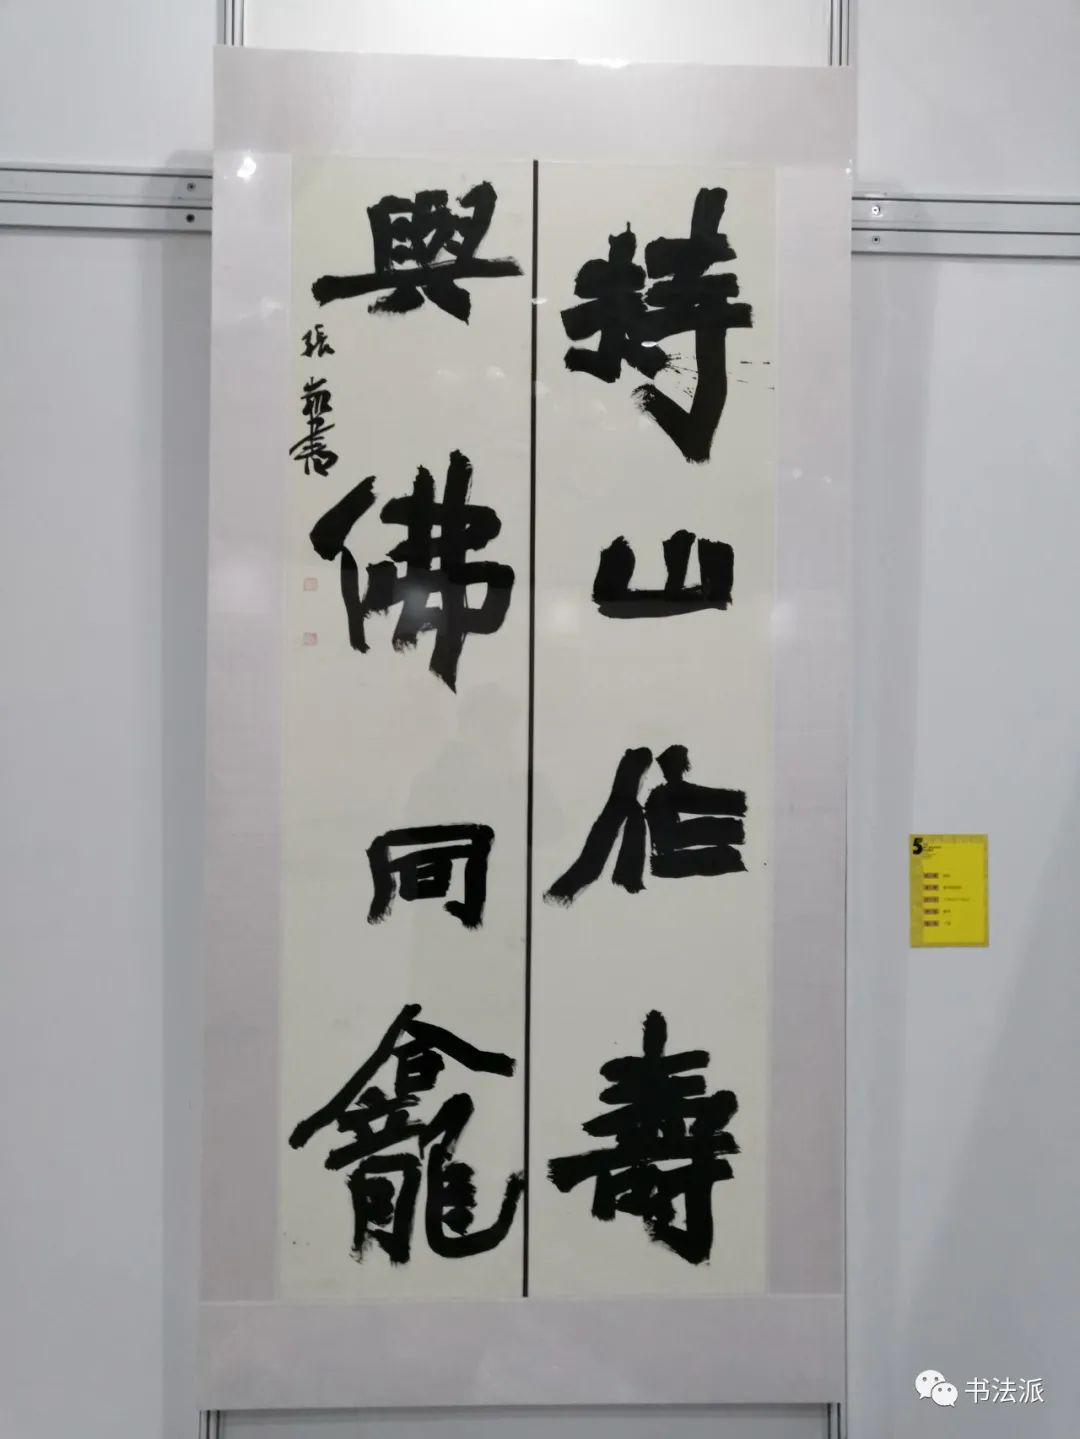 持山作壽
與佛同龕
張 書
5
书法派